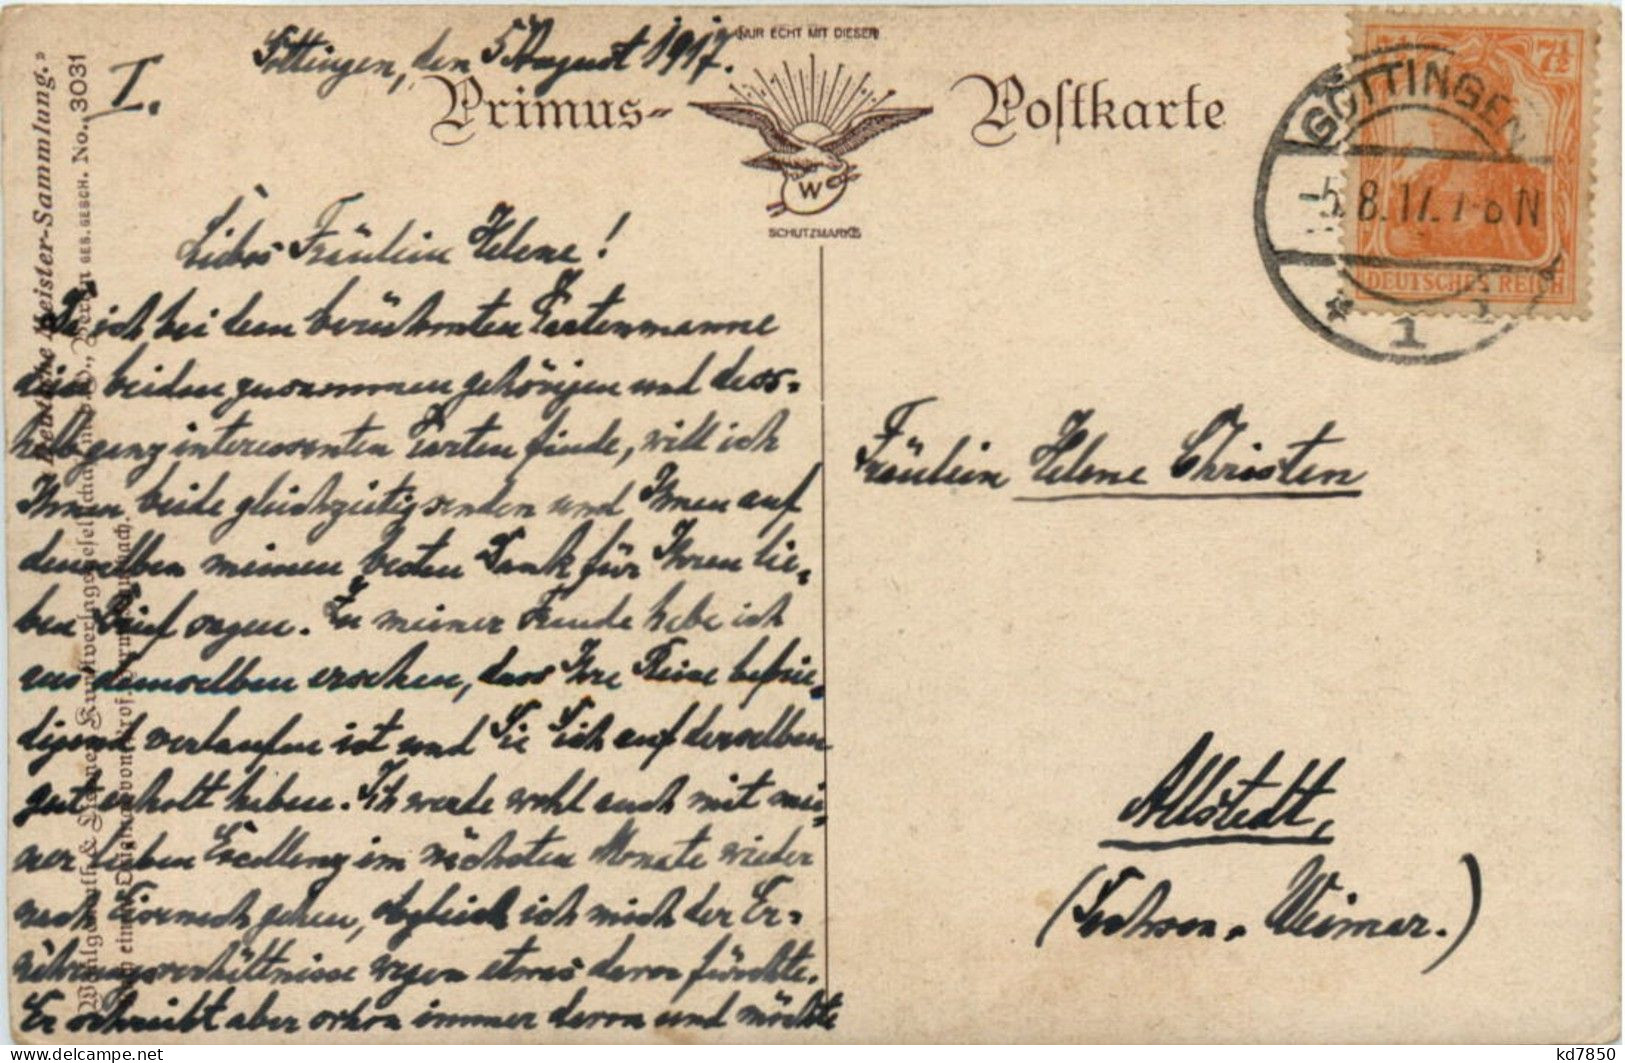 I.
Göttingen, den 5 August 1917.
NUR ECHT MIT DIESER
Primus-Postkarte
W
SCHUTZMARKE
Liebes Fräulein Helene!
Da ich bei dem berühmten Kartenmanne
die beiden zusammen gehörigen und dess-
halb ganz interessanten Karten finde, will ich
Ihnen beide gleichzeitig senden und Ihnen auf
denselben meinen besten Dank für Ihren lie-
ben Brief sagen. Zu meiner Freude habe ich
aus demselben ersehen, dass Ihre Reise befrie-
digend verlaufen ist und Sie Sich auf derselben
gut erholt haben. Ich werde wohl auch mit mei-
ner lieben Excellenz im nächsten Monate wieder
nach gehen, obgleich ich mich der Er-
nährungsverhältnisse wegen etwas davor fürchte.
Er schreibt aber schon immer davon und möchte
GÖTTINGEN
-5.8.17.7-8N
* 1
7½
DEUTSCHES REICH
Fräulein Helene Christen
Allstedt,
(Sachsen-Weimar.)
Meister-Sammlung."
GES. GESCH. No. 3031
kd7850